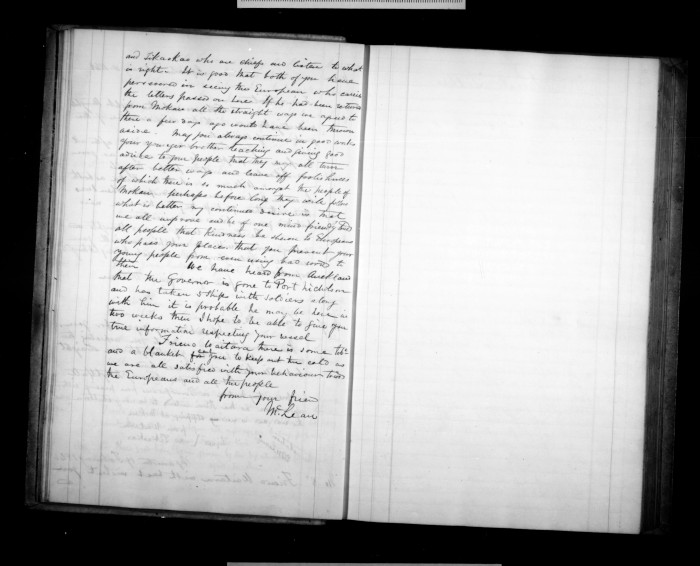 and who are chiefs and listen to what
is right. It is good that both of you have
persevered in seeing this European who carries
the letters passed on here. If he had been
from Mokau all the straight ways we agreed to
there a few days ago would have been thrown
aside. May you always continue in good and
your younger brother teaching and giving good
advice to your people that they may all turn
after better ways and leave off foolishness
of which there is so much amongst the people of
Mokau. perhaps before long they will follow
what is better my continued desire is that
we all improve and be of one mind friendly to
all people that kindness be shewn to Europeans
who pass your place that you prevent your
young people from even using bad words to
them We have heard from Auckland
that the Governor is gone to Port Nicholson
and has taken 5 ships with soldiers along
with him it is probable he may be here in
two weeks then I hope to be able to give you
true information respecting your vessel
Friend there is some
and a blanket for you to keep out the cold as
we are all satisfied with your behaviour
the Europeans and all the people
from your friend
McLean